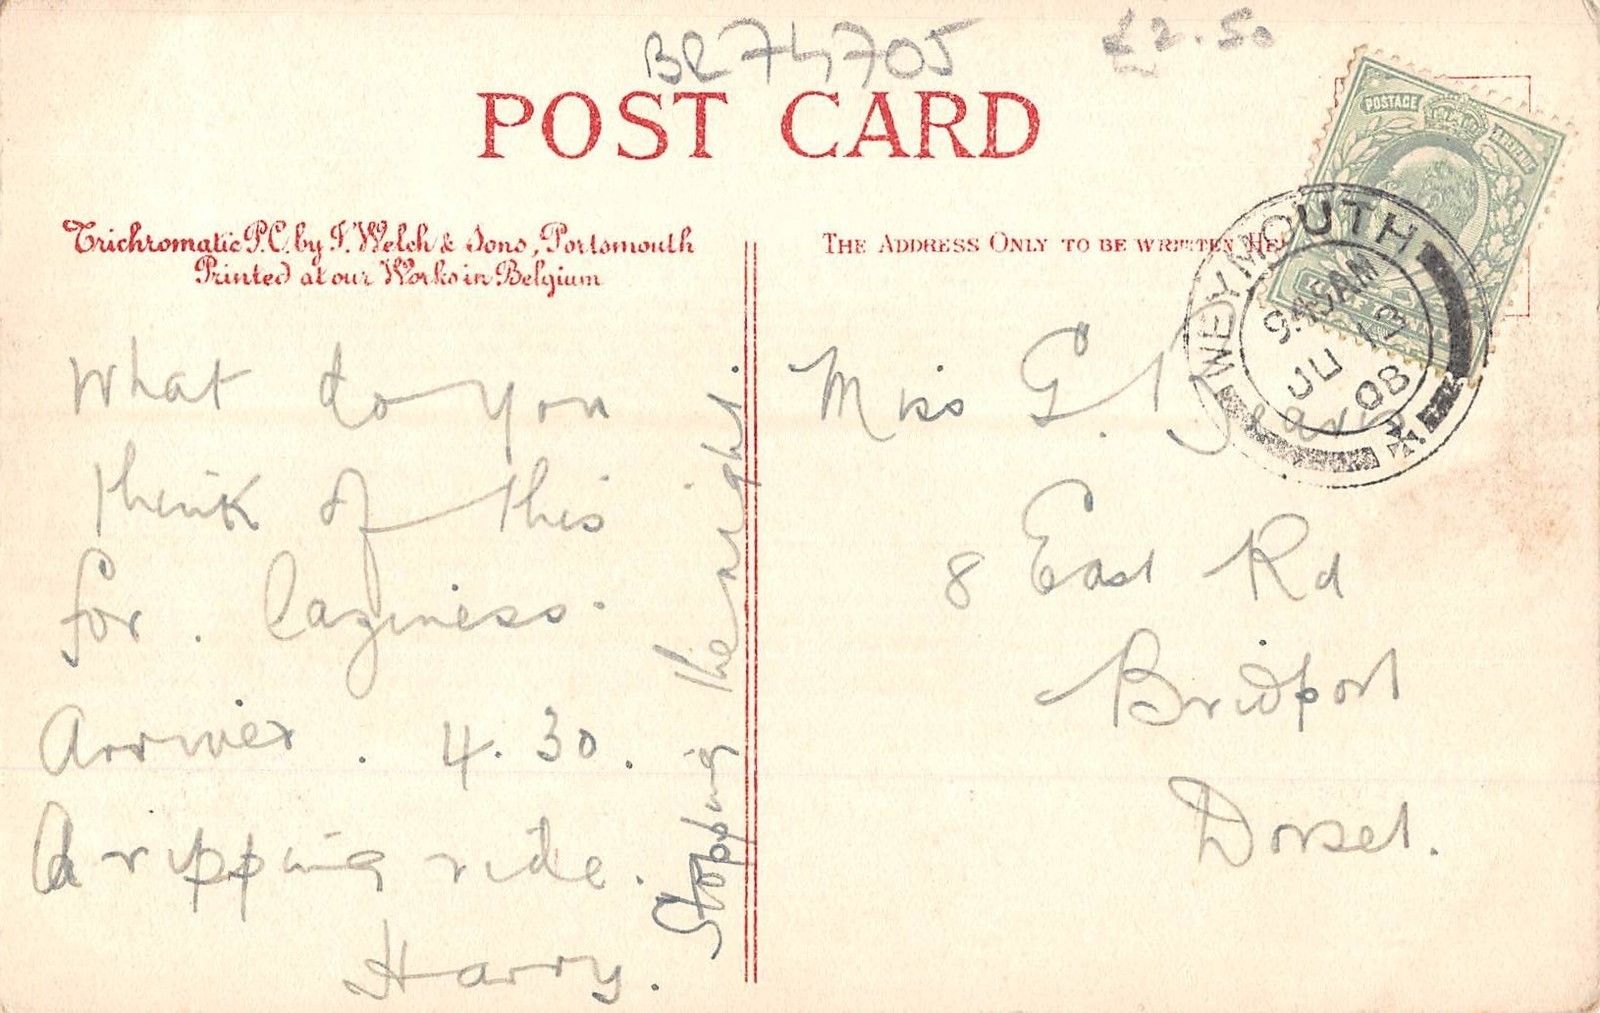 BR74705
£2.50
POST CARD
POSTAGE
REVENUE
Trichromatic P.C. by J. Welch & Sons, Portsmouth
Printed at our Works in Belgium
THE ADDRESS ONLY TO BE WRITTEN HE
WEYMOUTH
9.45AM
JU 13
08
What do you
think of this
for . laziness.
Arrived . 4.30 .
A ripping ride .
Harry .
Stopping the night.
Miss G.
8 East Rd
Bridport
Dorset.